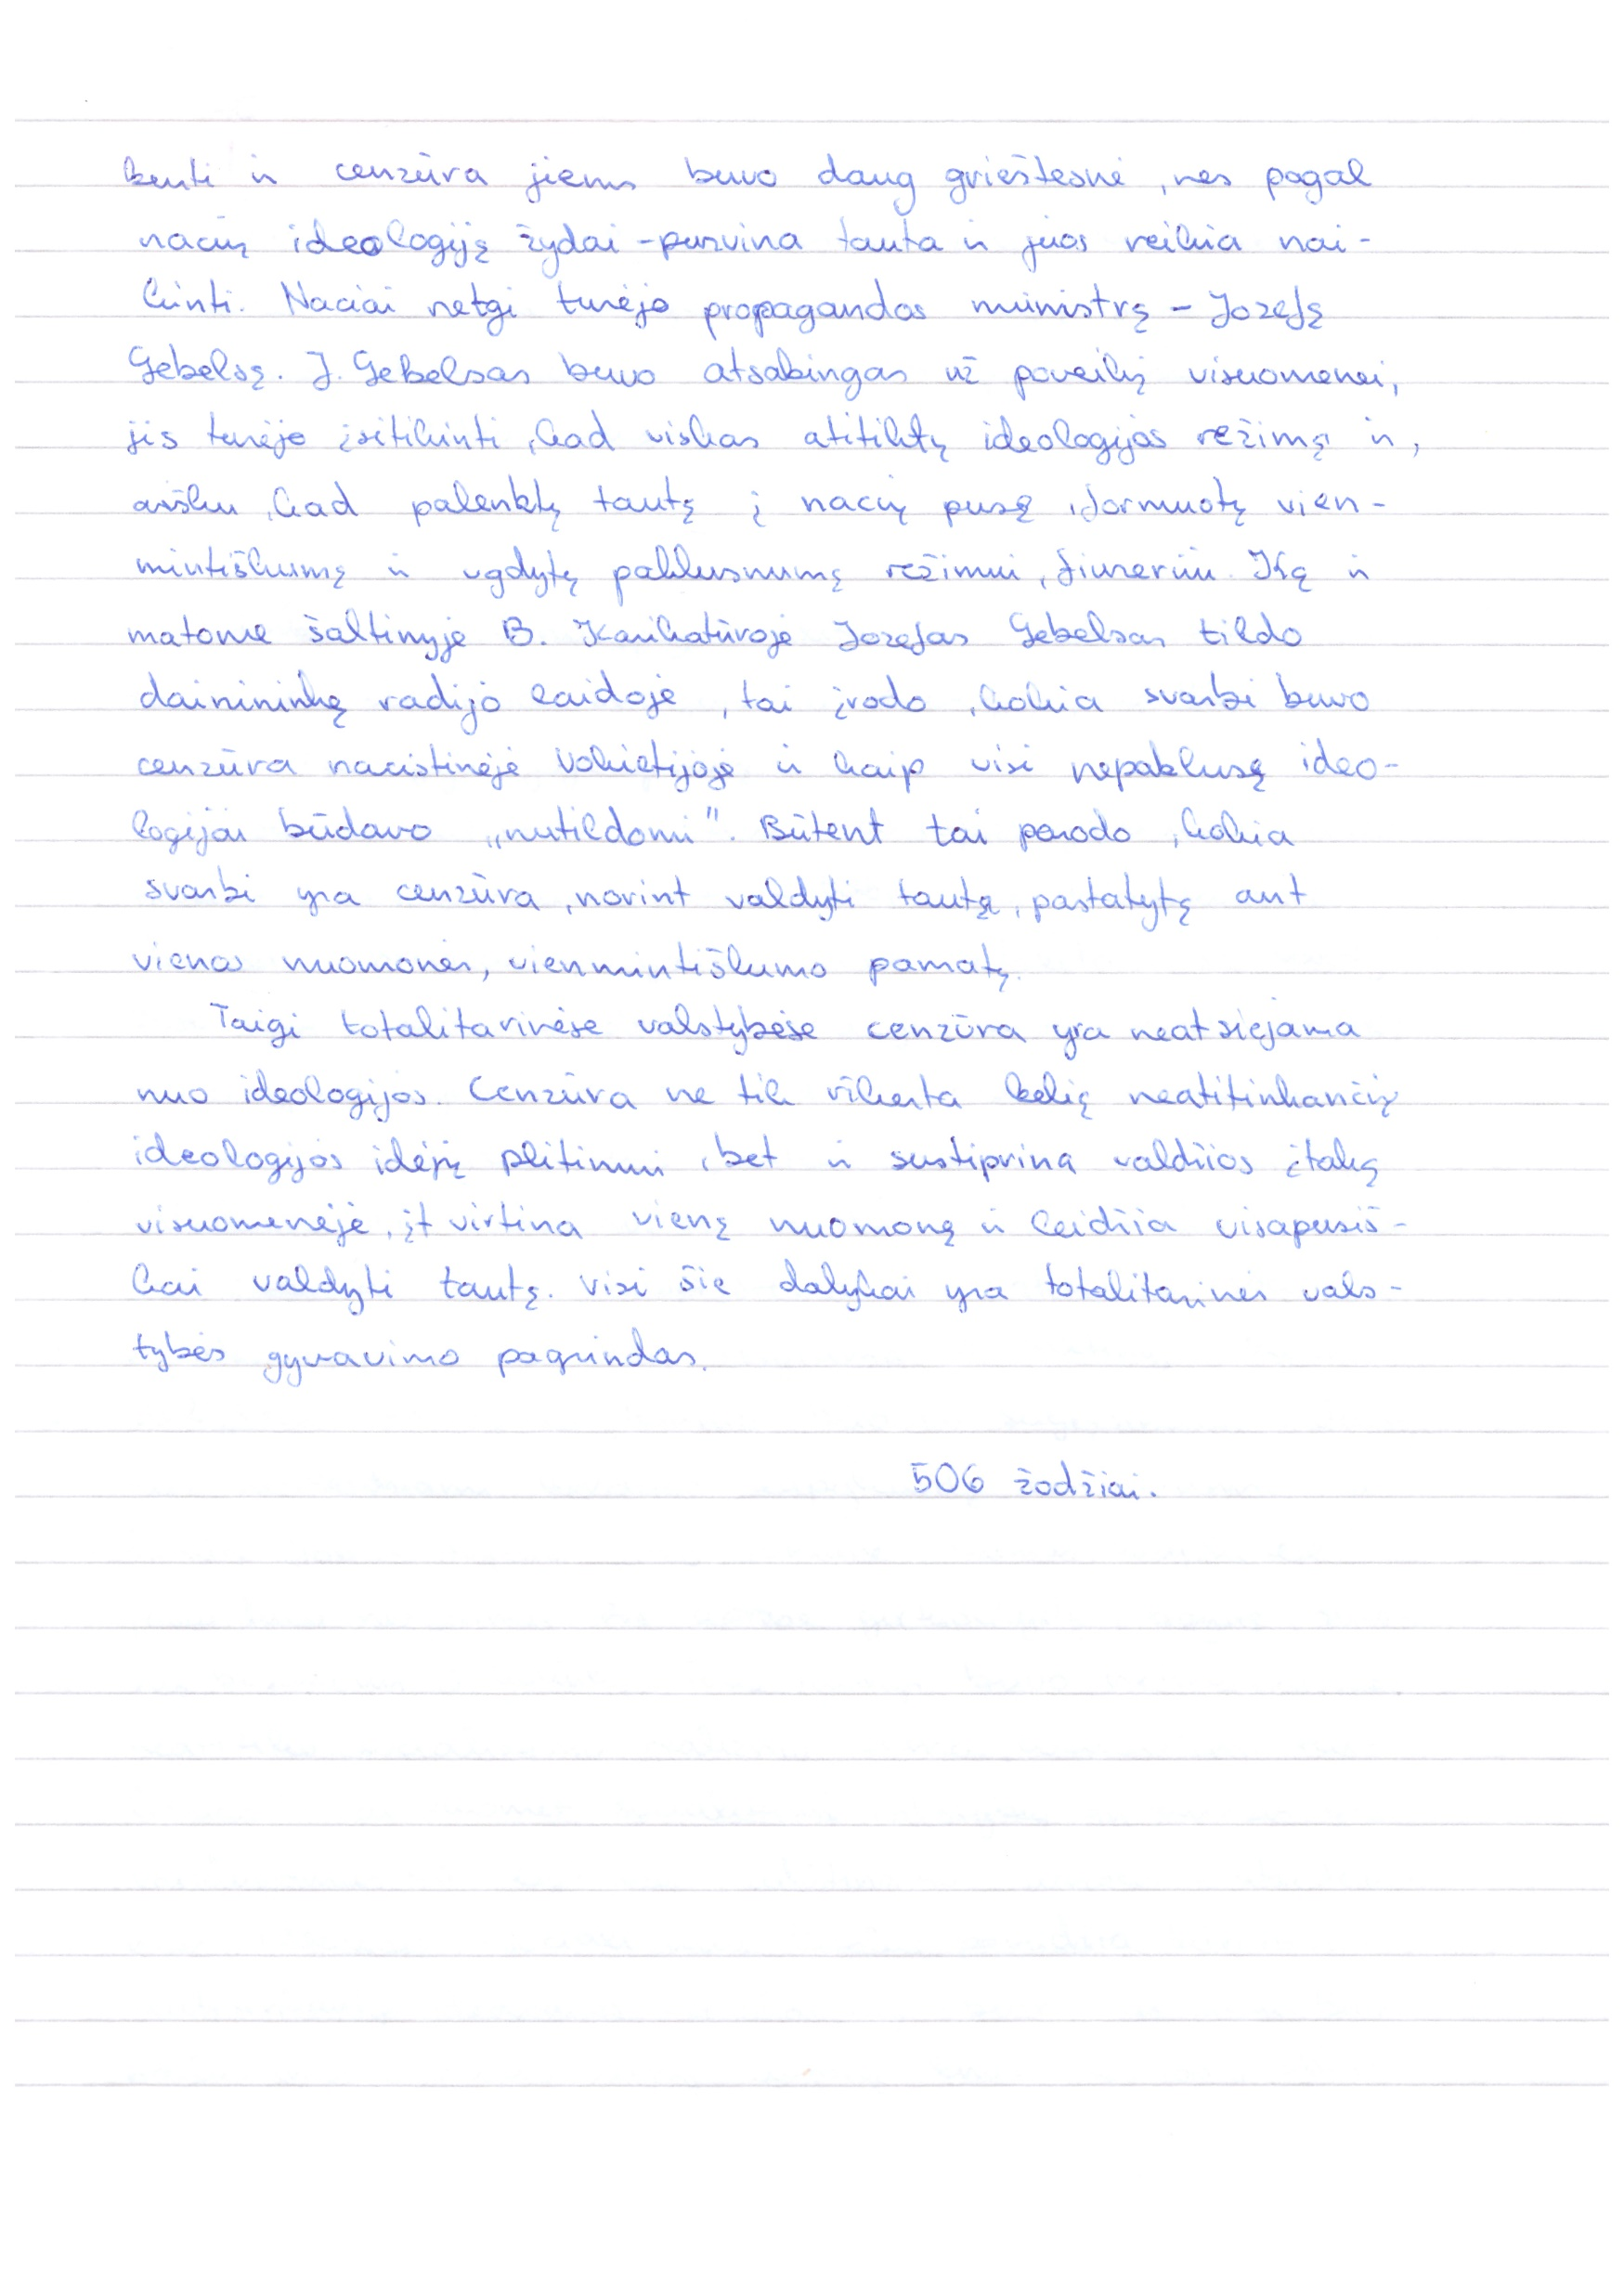 kenti ir cenzūra jiems buvo daug griežtesnė, nes pagal
nacių ideologiją žydai - purvina tauta ir juos reikia nai-
kinti. Naciai netgi turėjo propagandos ministrą - Jozefą
Gebelsą. J. Gebelsas buvo atsakingas už poveikį visuomenei,
jis turėjo įsitikinti, kad viskas atitiktų ideologijos režimą ir,
aišku, kad palenktų tautą į nacių pusę, formuotų vien-
mintiškumą ir ugdytų paklusnumą režimui, fiureriui. Ką ir
matome šaltinyje B. Karikatūroje Jozefas Gebelsas tildo
dainininką radijo laidoje, tai įrodo, kokia svarbi buvo
cenzūra nacistinėje Vokietijoje ir kaip visi nepaklusę ideo-
logijai būdavo „nutildomi". Būtent tai parodo, kokia
svarbi yra cenzūra, norint valdyti tautą, pastatytą ant
vienos nuomonės, vienmintiškumo pamatų.
Taigi totalitarinėse valstybėse cenzūra yra neatsiejama
nuo ideologijos. Cenzūra ne tik užkerta kelią neatitinkančių
ideologijos idėjų plitimui, bet ir sustiprina valdžios įtaką
visuomenėje, įtvirtina vieną nuomonę ir leidžia visapusiš-
kai valdyti tautą. Visi šie dalykai yra totalitarinės vals-
tybės gyvavimo pagrindas.
506 žodžiai.